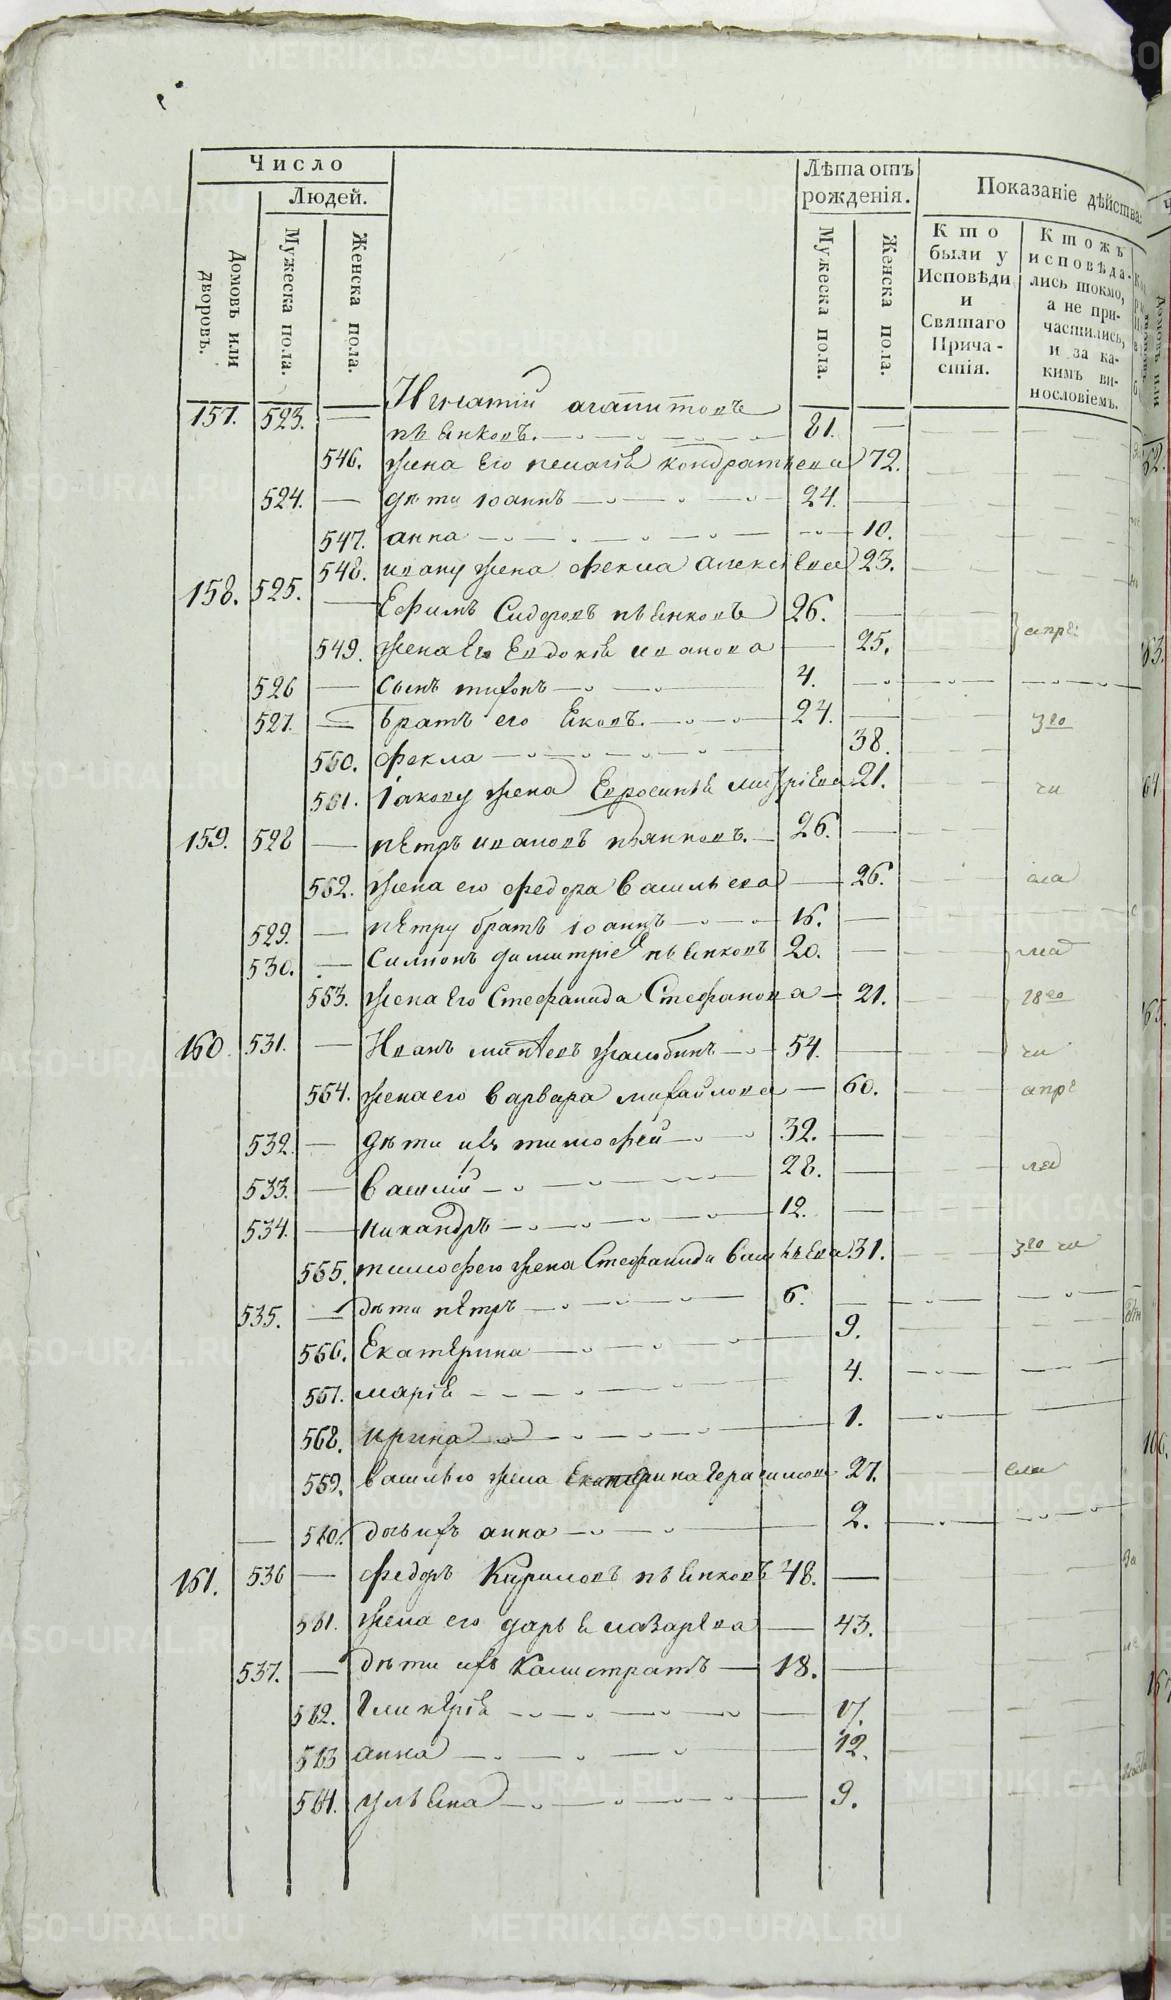 Число
Людей.
Домовъ или дворовъ.
Мужеска пола.
Женска пола.
Лѣта отъ рожденія.
Мужеска пола.
Женска пола.
Показаніе дѣйства
Кто были у Исповѣди и Святаго Прича-стія.
Ктожъ исповѣда-лись токмо, а не при-частились, и за ка-кимъ ви-нословіемъ.
157. 523. — Игнатій агапитовъ
пьянковъ. 81. —
546. жена Его пелагія кондратьева 72.
524. — дѣти Іоаннъ 24. —
547. анна 10.
548. ивану жена фекла алексѣева 23.
158. 525. — Ефимъ Сидоровъ пьянковъ 26. —
549. жена Его Евдокія иванова 25. апрѣ
526 — сынъ тихонъ 4. —
527. — братъ его Яковъ. 24. — 3го
550. фекла 38.
551. Іакову жена Евросинія 21. чи
159. 528 — пЕтръ ивановъ пьянковъ. 26. —
552. жена его федора васильева 26. сла
529. — пЕтру братъ Іоаннъ 16. —
530. — Симионъ димитріе пьянковъ 20. —
553. жена Его Стефанида Стефанова 21. 28го
160. 531. — Иванъ жалобинъ 54. — чи
554. жена его варвара михайлова 60. апрѣ
532. — дѣти ихъ тимофей 32. —
533. — василий 28. —
534. — никандръ 12. —
555. тимофею жена Стефанида васильева 31. 3го чи
535. — дѣти пЕтръ 6. —
556. Екатерина 9.
557. марія 4.
558. ирина 1.
559. василью жена Екатерина Герасимова 27. сла
560. дочь ихъ анна 2.
161. 536 — федоръ Кириловъ пьянковъ 48. —
561. жена его дарья назарЕва 43.
537. — дѣти ихъ Калистратъ 18. —
562. Гликерія 17.
563 анна 12.
564. ульяна 9.
METRIKI.GASO-URAL.RU